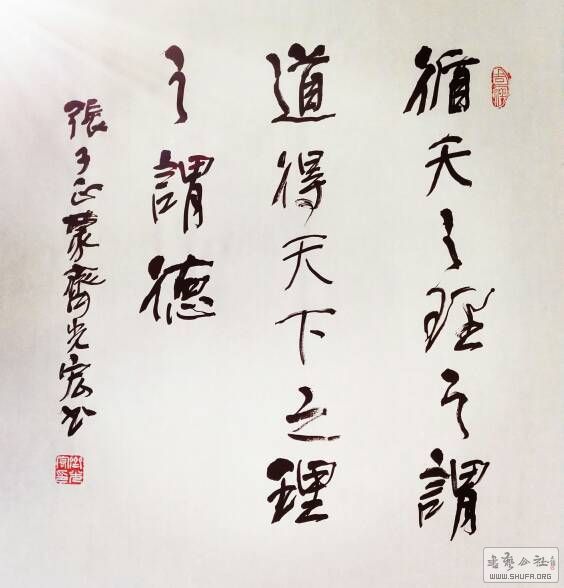 循天之理之謂
道得天下之理
之謂德
張子正蒙齊光宏书
WWW.SHUFA.ORG